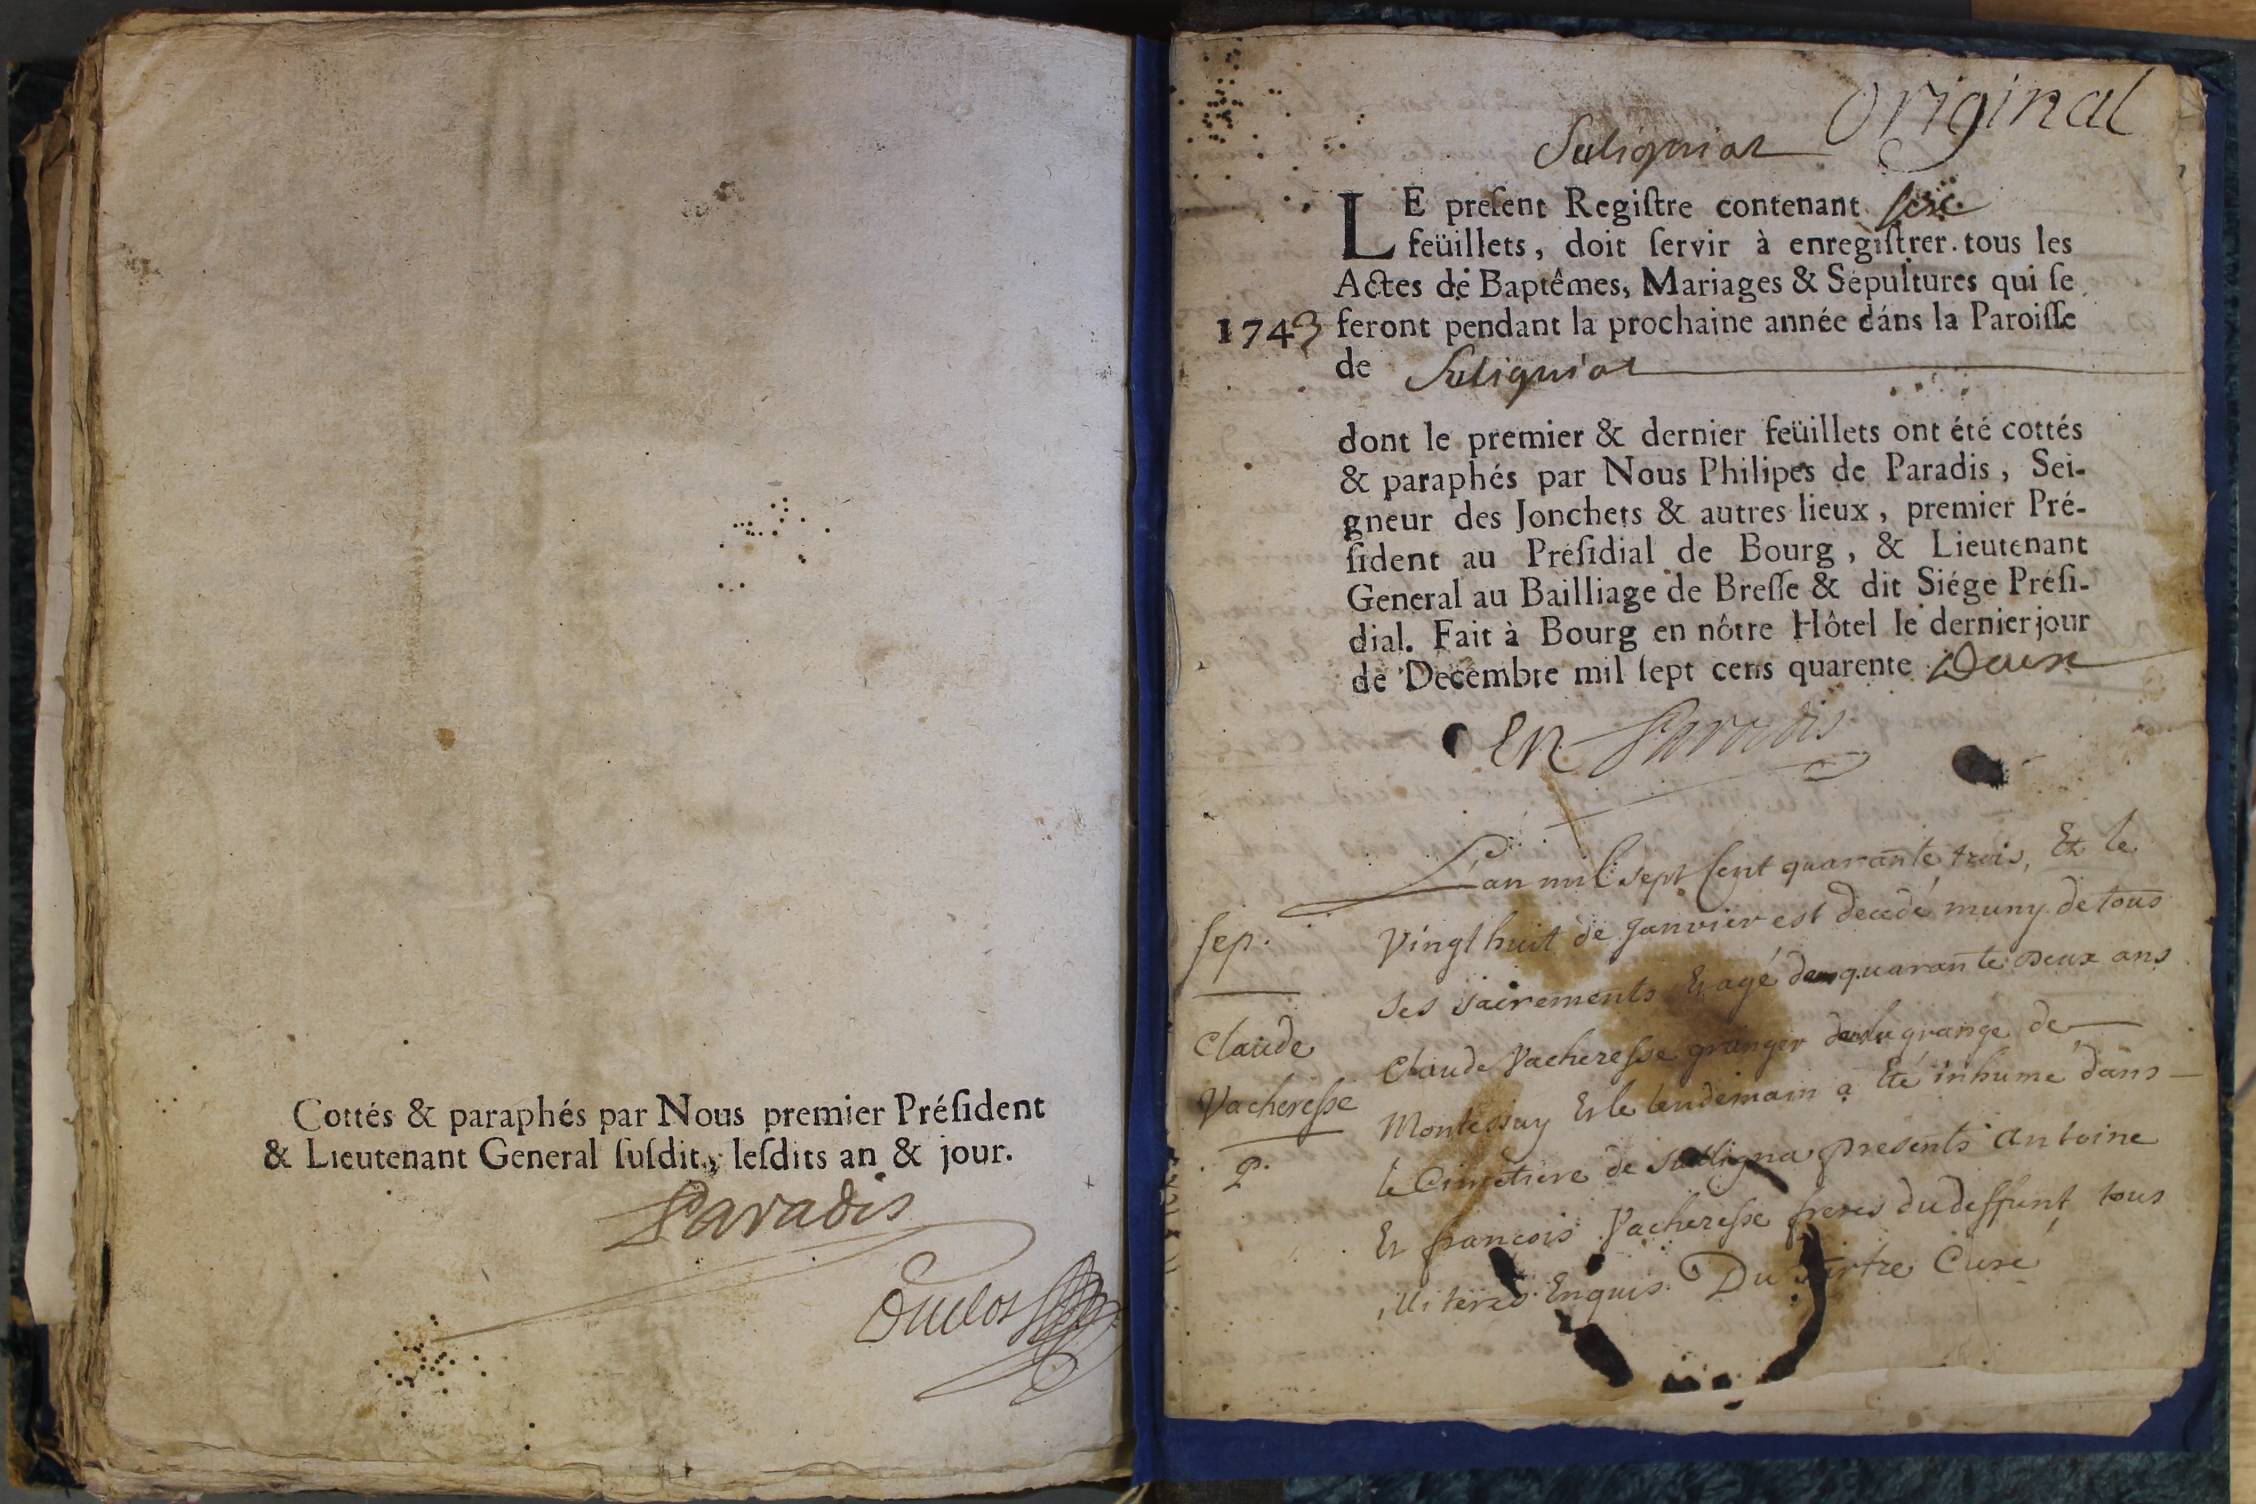 Cottés & paraphés par Nous premier Préſident
& Lieutenant General ſuſdit, leſdits an & jour.
Paradis
Duclos
Original
Suligniat
LE preſent Regiſtre contenant ſix
feüillets, doit ſervir à enregiſtrer tous les
Actes de Baptêmes, Mariages & Sepultures qui ſe
1743 feront pendant la prochaine année dáns la Paroiſſe
de Suligniat
dont le premier & dernier feüillets ont été cottés
& paraphés par Nous Philipes de Paradis, Sei-
gneur des Jonchets & autres lieux, premier Pré-
ſident au Preſidial de Bourg, & Lieutenant
General au Bailliage de Breſſe & dit Siége Préſi-
dial. Fait à Bourg en nôtre Hôtel le dernier jour
de Decembre mil ſept cens quarente Deux
Paradis
L'an mil sept Cent quarante trois, Et le
Vingt huit de Janvier est decedé muny de tous
ses sacrements Et agé de quarante Deux ans
Claude Vacheresse granger de la grange de
Montessuy Et le lendemain a Eté inhumé dans
le Cimetiere de Sulligna presents Antoine
Et françois Vacheresse freres du deffunt tous
illiteres Enquis. Du Tartre Curé
sep.
Claude
Vacheresse
P.